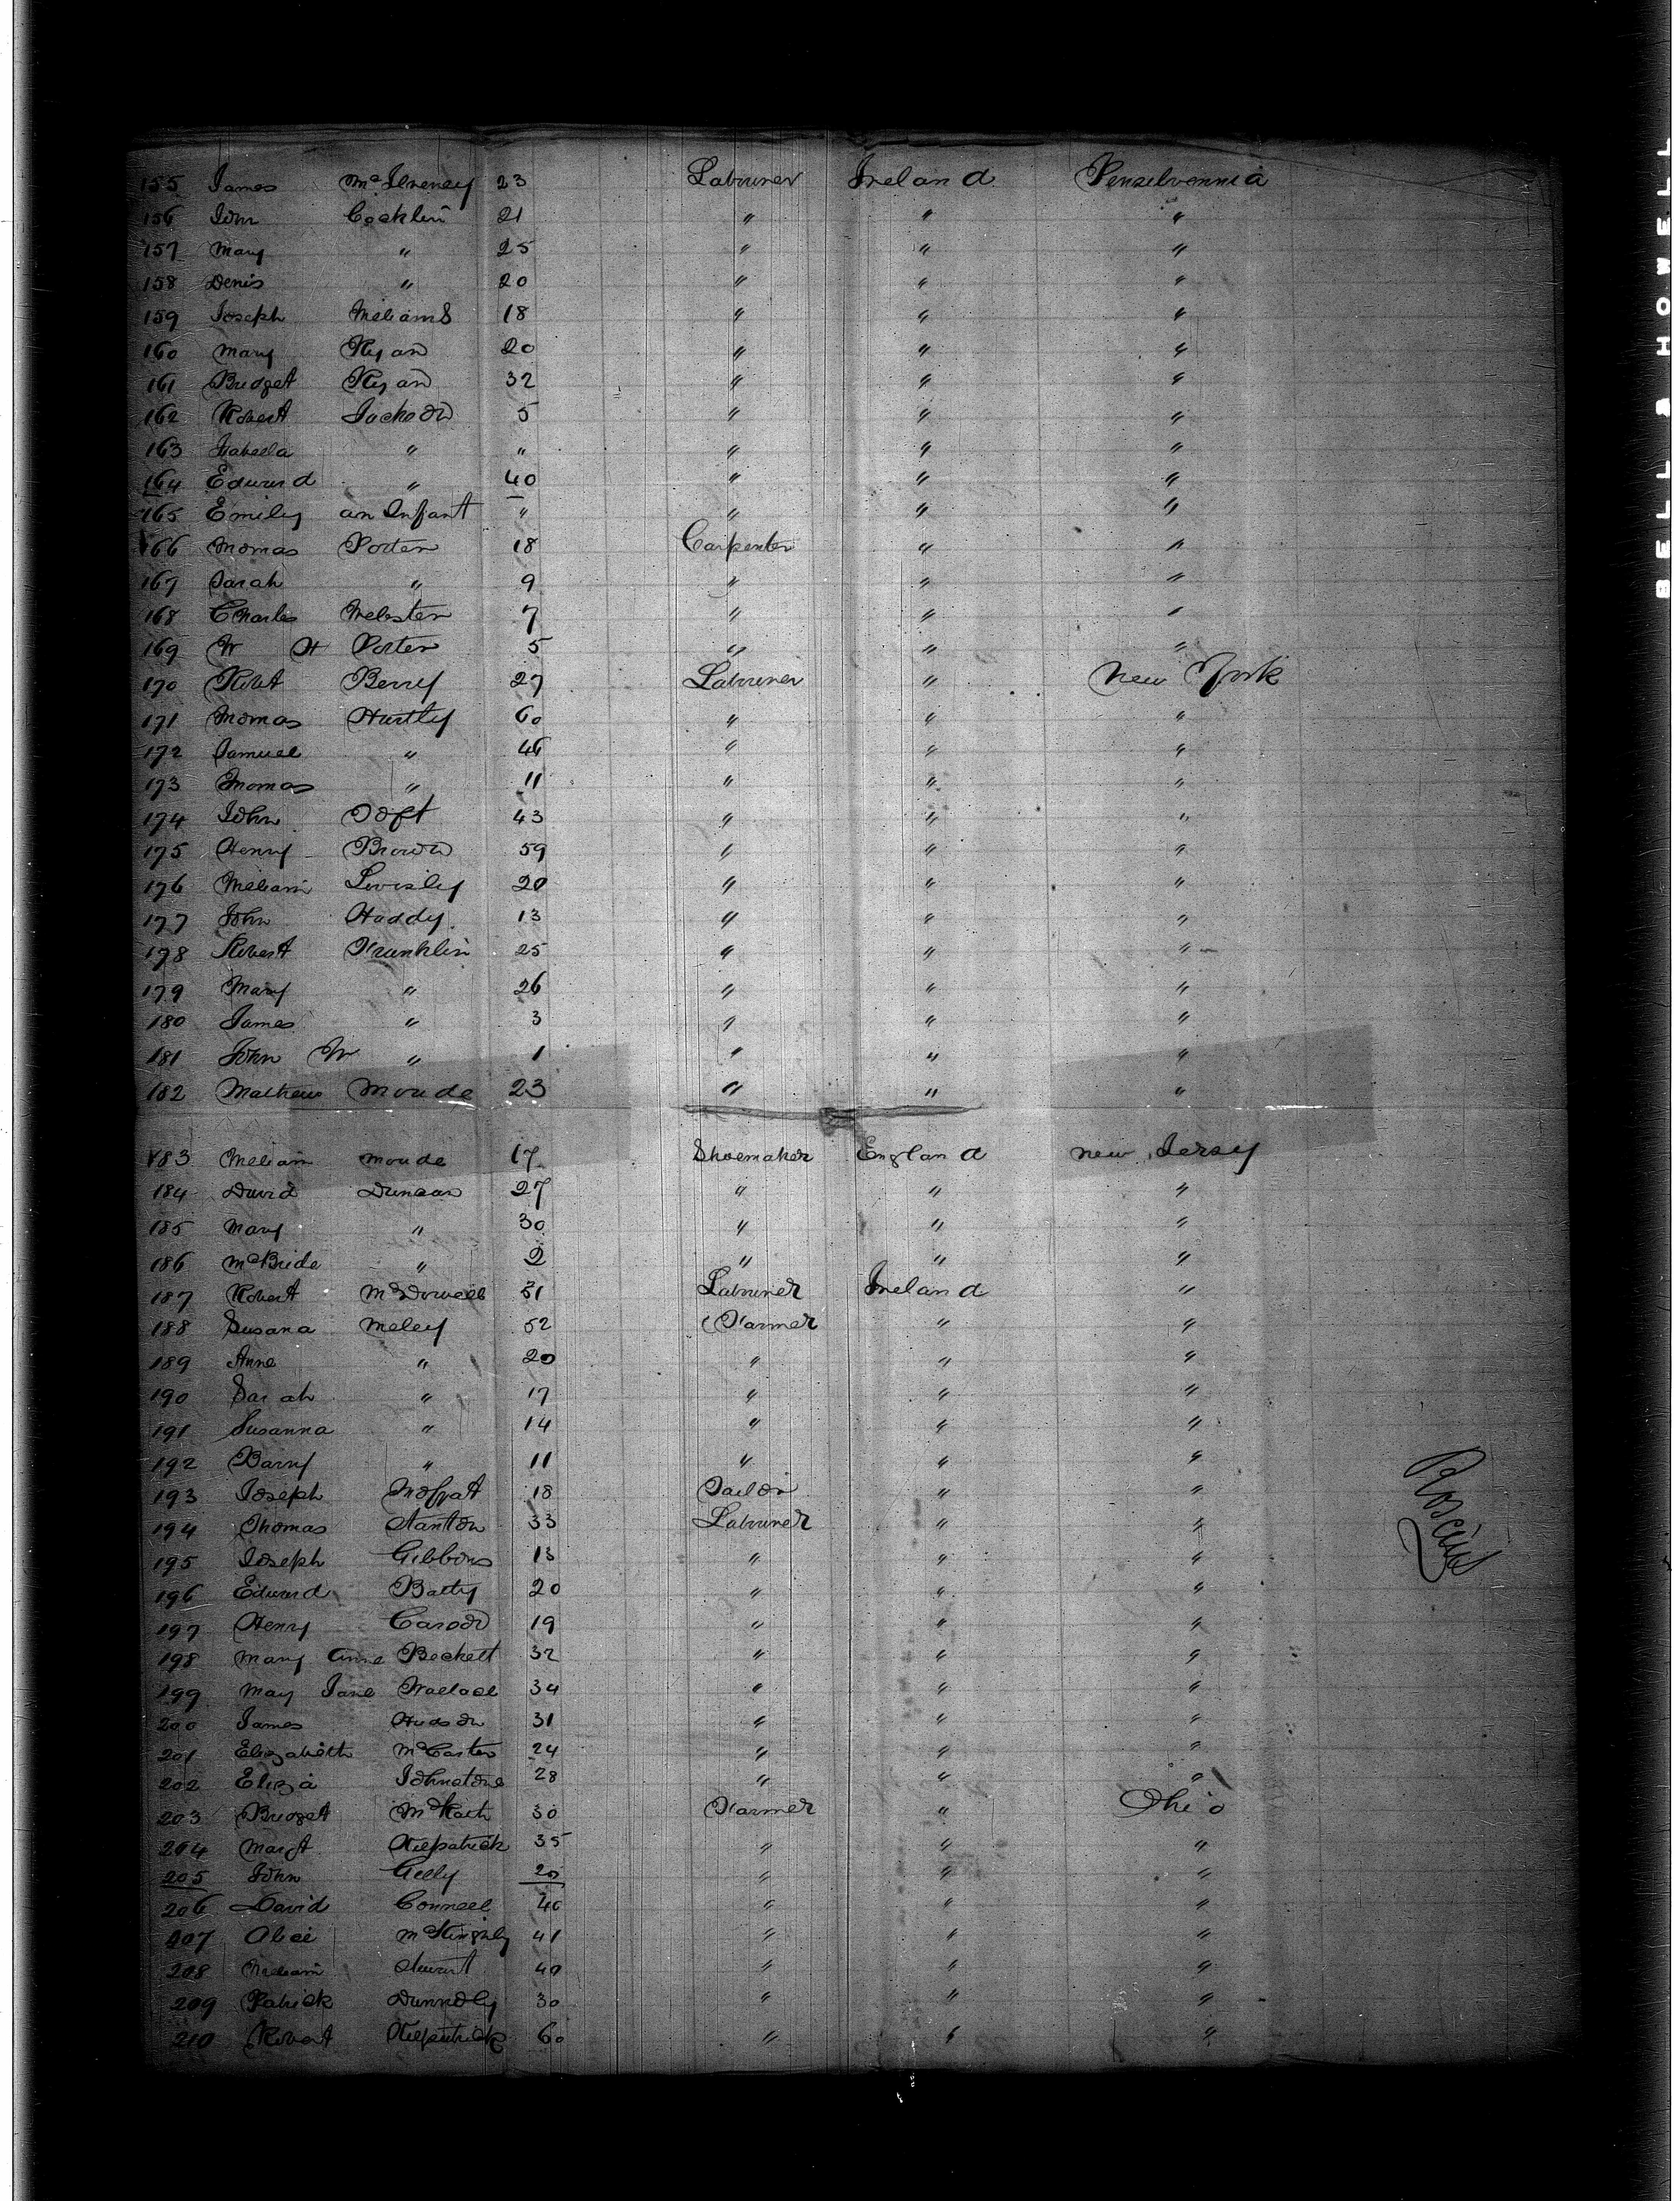 155 James McIlveney 23 Labourer Ireland Penselvennia
156 John Cocklin 21 " " "
157 Mary " 25 " " "
158 Denis " 20 " " "
159 Joseph Williams 18 " " "
160 Mary Ryan 20 " " "
161 Bridget Ryan 32 " " "
162 Robert Jackson 5 " " "
163 Isabella " " " " "
164 Edward " 40 " " "
165 Emily an Infant " " " "
166 Thomas Porter 18 Carpenter " "
167 Sarah " 9 " " "
168 Charles Webster 7 " " "
169 W H Porter 5 " " "
170 Robt Berry 27 Labourer " New York
171 Thomas Hartly 60 " " "
172 Samuel " 46 " " "
173 Thomas " 11 " " "
174 John Toft 43 " " "
175 Henry Brown 59 " " "
176 William 20 " " "
177 John Haddy 13 " " "
178 Robert Franklin 25 " " "
179 Mary " 26 " " "
180 James " 3 " " "
181 John W " 1 " " "
182 Mathew Moude 23 " " "
183 William Moude 17 Shoemaker England New Jersy
184 David Duncan 27 " " "
185 Mary " 30 " " "
186 McBride " 2 " " "
187 Robert McDowell 31 Labourer Ireland "
188 Susana Meley 52 Farmer " "
189 Anne " 20 " " "
190 Sarah " 17 " " "
191 Susanna " 14 " " "
192 Barny " 11 " " "
193 Joseph Moffat 18 Tailor " "
194 Thomas Stanton 33 Labourer " "
195 Joseph Gibbons 13 " " "
196 Edward Batty 20 " " "
197 Henry Carson 19 " " "
198 Mary Anne Beckett 32 " " "
199 Mary Jane Wallace 34 " " "
200 James Hudson 31 " " "
201 Elizabeth McCarter 24 " " "
202 Eliza Johnstone 28 " " "
203 Bridget 30 Farmer " Ohio
204 Margt Kilpatrick 35 " " "
205 John Gelly 20 " " "
206 David Connell 40 " " "
207 Alice 41 " " "
208 William Stewart 40 " " "
209 Patrick Dunnoly 30 " " "
210 Robert Kilpatrick 60 " " "
Roscius
BELL & HOWELL